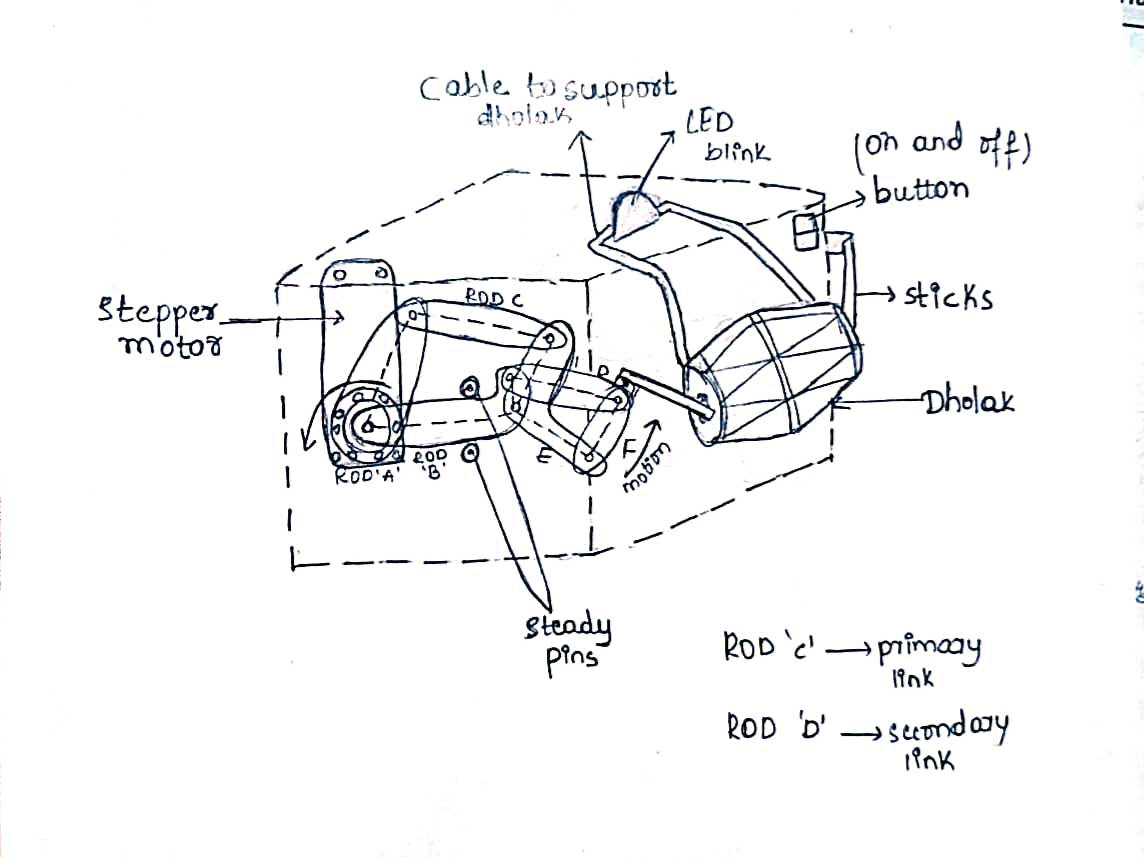 Cable to support
dholak
LED
blink
(on and off)
button
ROD C
Stepper
motor
sticks
D
B
Dholak
E
F
motion
ROD 'A'
ROD
'B'
Steady
pins
ROD 'C' → primary
link
ROD 'D' → secondary
link